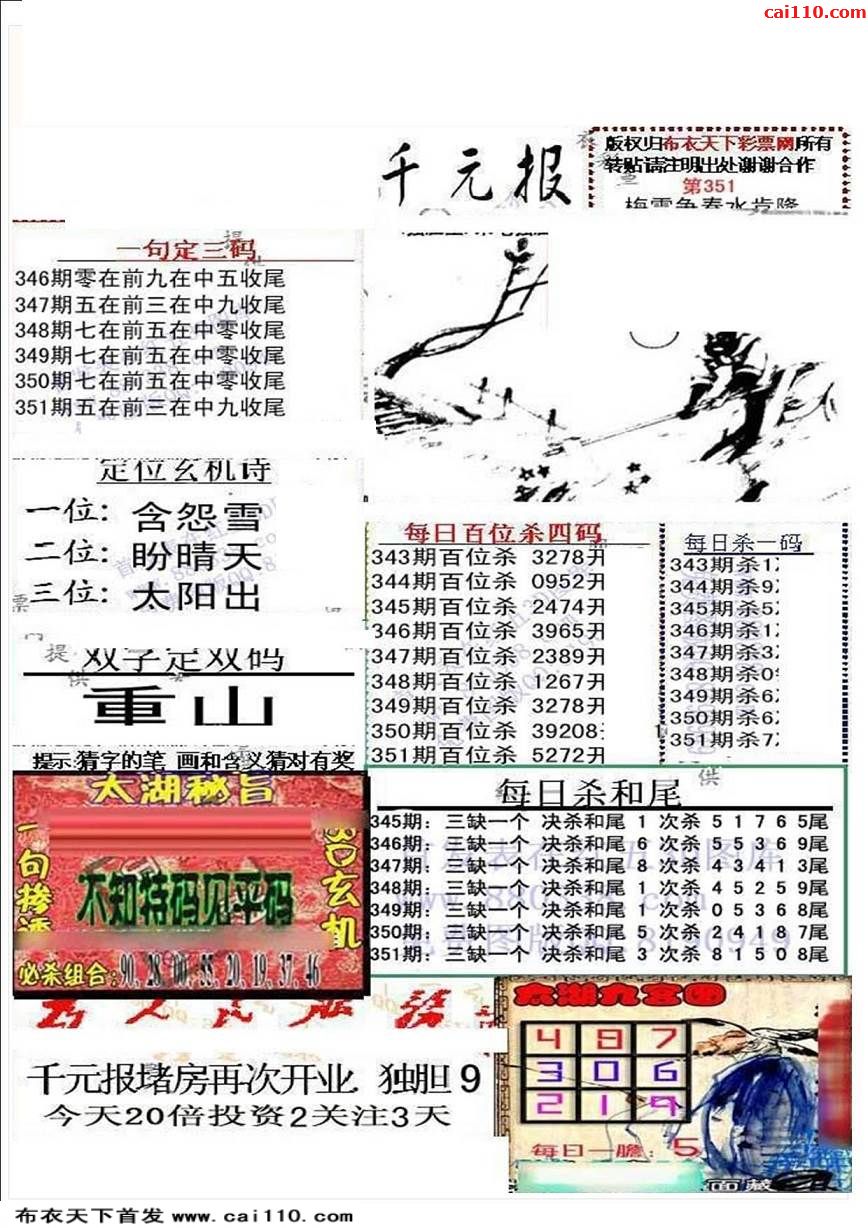 cai110.com
千元报
版权归布衣天下彩票网所有
转贴请注明出处谢谢合作
第351
梅雪争春水肯降
一句定三码
346期零在前九在中五收尾
347期五在前三在中九收尾
348期七在前五在中零收尾
349期七在前五在中零收尾
350期七在前五在中零收尾
351期五在前三在中九收尾
定位玄机诗
一位: 含怨雪
二位: 盼晴天
三位: 太阳出
每日百位杀四码
343期百位杀 3278开
344期百位杀 0952开
345期百位杀 2474开
346期百位杀 3965开
347期百位杀 2389开
348期百位杀 1267开
349期百位杀 3278开
350期百位杀 39208
351期百位杀 5272开
每日杀一码
343期杀1
344期杀9
345期杀5
346期杀1
347期杀3
348期杀0
349期杀6
350期杀6
351期杀7
双字定双码
重山
提示:猜字的笔 画和含义猜对有奖
太湖秘旨
不知特码见平码
玄机
必杀组合:90,28,00,55,20,19,37,46
每日杀和尾
345期: 三缺一个 决杀和尾 1 次杀 5 1 7 6 5尾
346期: 三缺一个 决杀和尾 6 次杀 5 5 3 6 9尾
347期: 三缺一个 决杀和尾 8 次杀 4 3 4 1 3尾
348期: 三缺一个 决杀和尾 1 次杀 4 5 2 5 9尾
349期: 三缺一个 决杀和尾 1 次杀 0 5 3 6 8尾
350期: 三缺一个 决杀和尾 5 次杀 2 4 1 8 7尾
351期: 三缺一个 决杀和尾 3 次杀 8 1 5 0 8尾
千元报堵房再次开业. 独胆 9
今天20倍投资2关注3天
太湖九宫图
4 9 7
3 0 6
2 1 9
每日一胆: 5
面藏
布衣天下首发 www.cai110.com